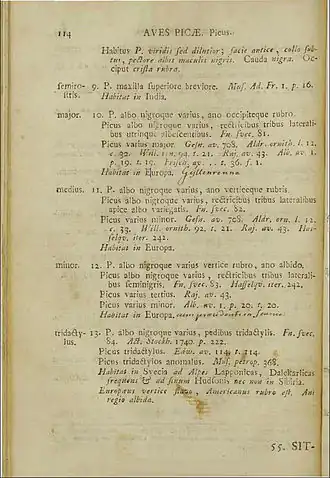 114 AVES PICÆ. Picus.
Habitus P. viridis sed dilutior; facie antice, collo sub-
tus, pectore albis maculis nigris. Cauda nigra. Oc-
ciput crista rubra.
semiro- 9. P. maxilla superiore breviore. Mus. Ad. Fr. 1. p. 16.
stris. Habitat in India.
major. 10. P. albo nigroque varius, ano occipiteque rubro.
Picus albo nigroque varius, rectricibus tribus laterali-
bus utrinque albicentibus. Fn. svec. 81.
Picus varius major. Gesn. av. 708. Aldr. ornith. l. 12.
c. 32. Will. orn. 94. t. 21. Raj. av. 43. Alb. av. 1.
p. 19. t. 19. Frisch. av. 1. t. 36. f. 1.
Habitat in Europa.
medius. 11. P. albo nigroque varius, ano verticeque rubris.
Picus albo nigroque varius, rectricibus tribus lateralibus
apice albo variegatis. Fn. svec. 82.
Picus varius minor. Gesn. av. 708. Aldr. orn. l. 12.
c. 33. Will. ornith. 94. t. 21. Raj. av. 43. Has-
selqv. iter. 242.
Habitat in Europa.
minor. 12. P. albo nigroque varius vertice rubro, ano albido.
Picus albo nigroque varius, rectricibus tribus laterali-
bus seminigris. Fn. svec. 83. Hasselqv. iter. 242.
Picus varius tertius. Raj. av. 43.
Picus varius minor. Alb. av. 1. p. 20. t. 20.
Habitat in Europa.
tridacty- 13. P. albo nigroque varius, pedibus tridactylis. Fn. svec.
lus. 84. Act. Stockh. 1740. p. 222.
Picus tridactylus. Edw. av. 114. t. 114.
Picus tridactylos anomalus. Mus. petrop. 368.
Habitat in Svecis ad Alpes Lapponicas, Dalekarlicas
frequens & ad sinum Hudsonis nec non in Sibiria.
Europæus vertice flavo, Americanus rubro est. Ani
regio albida.
55. SIT-